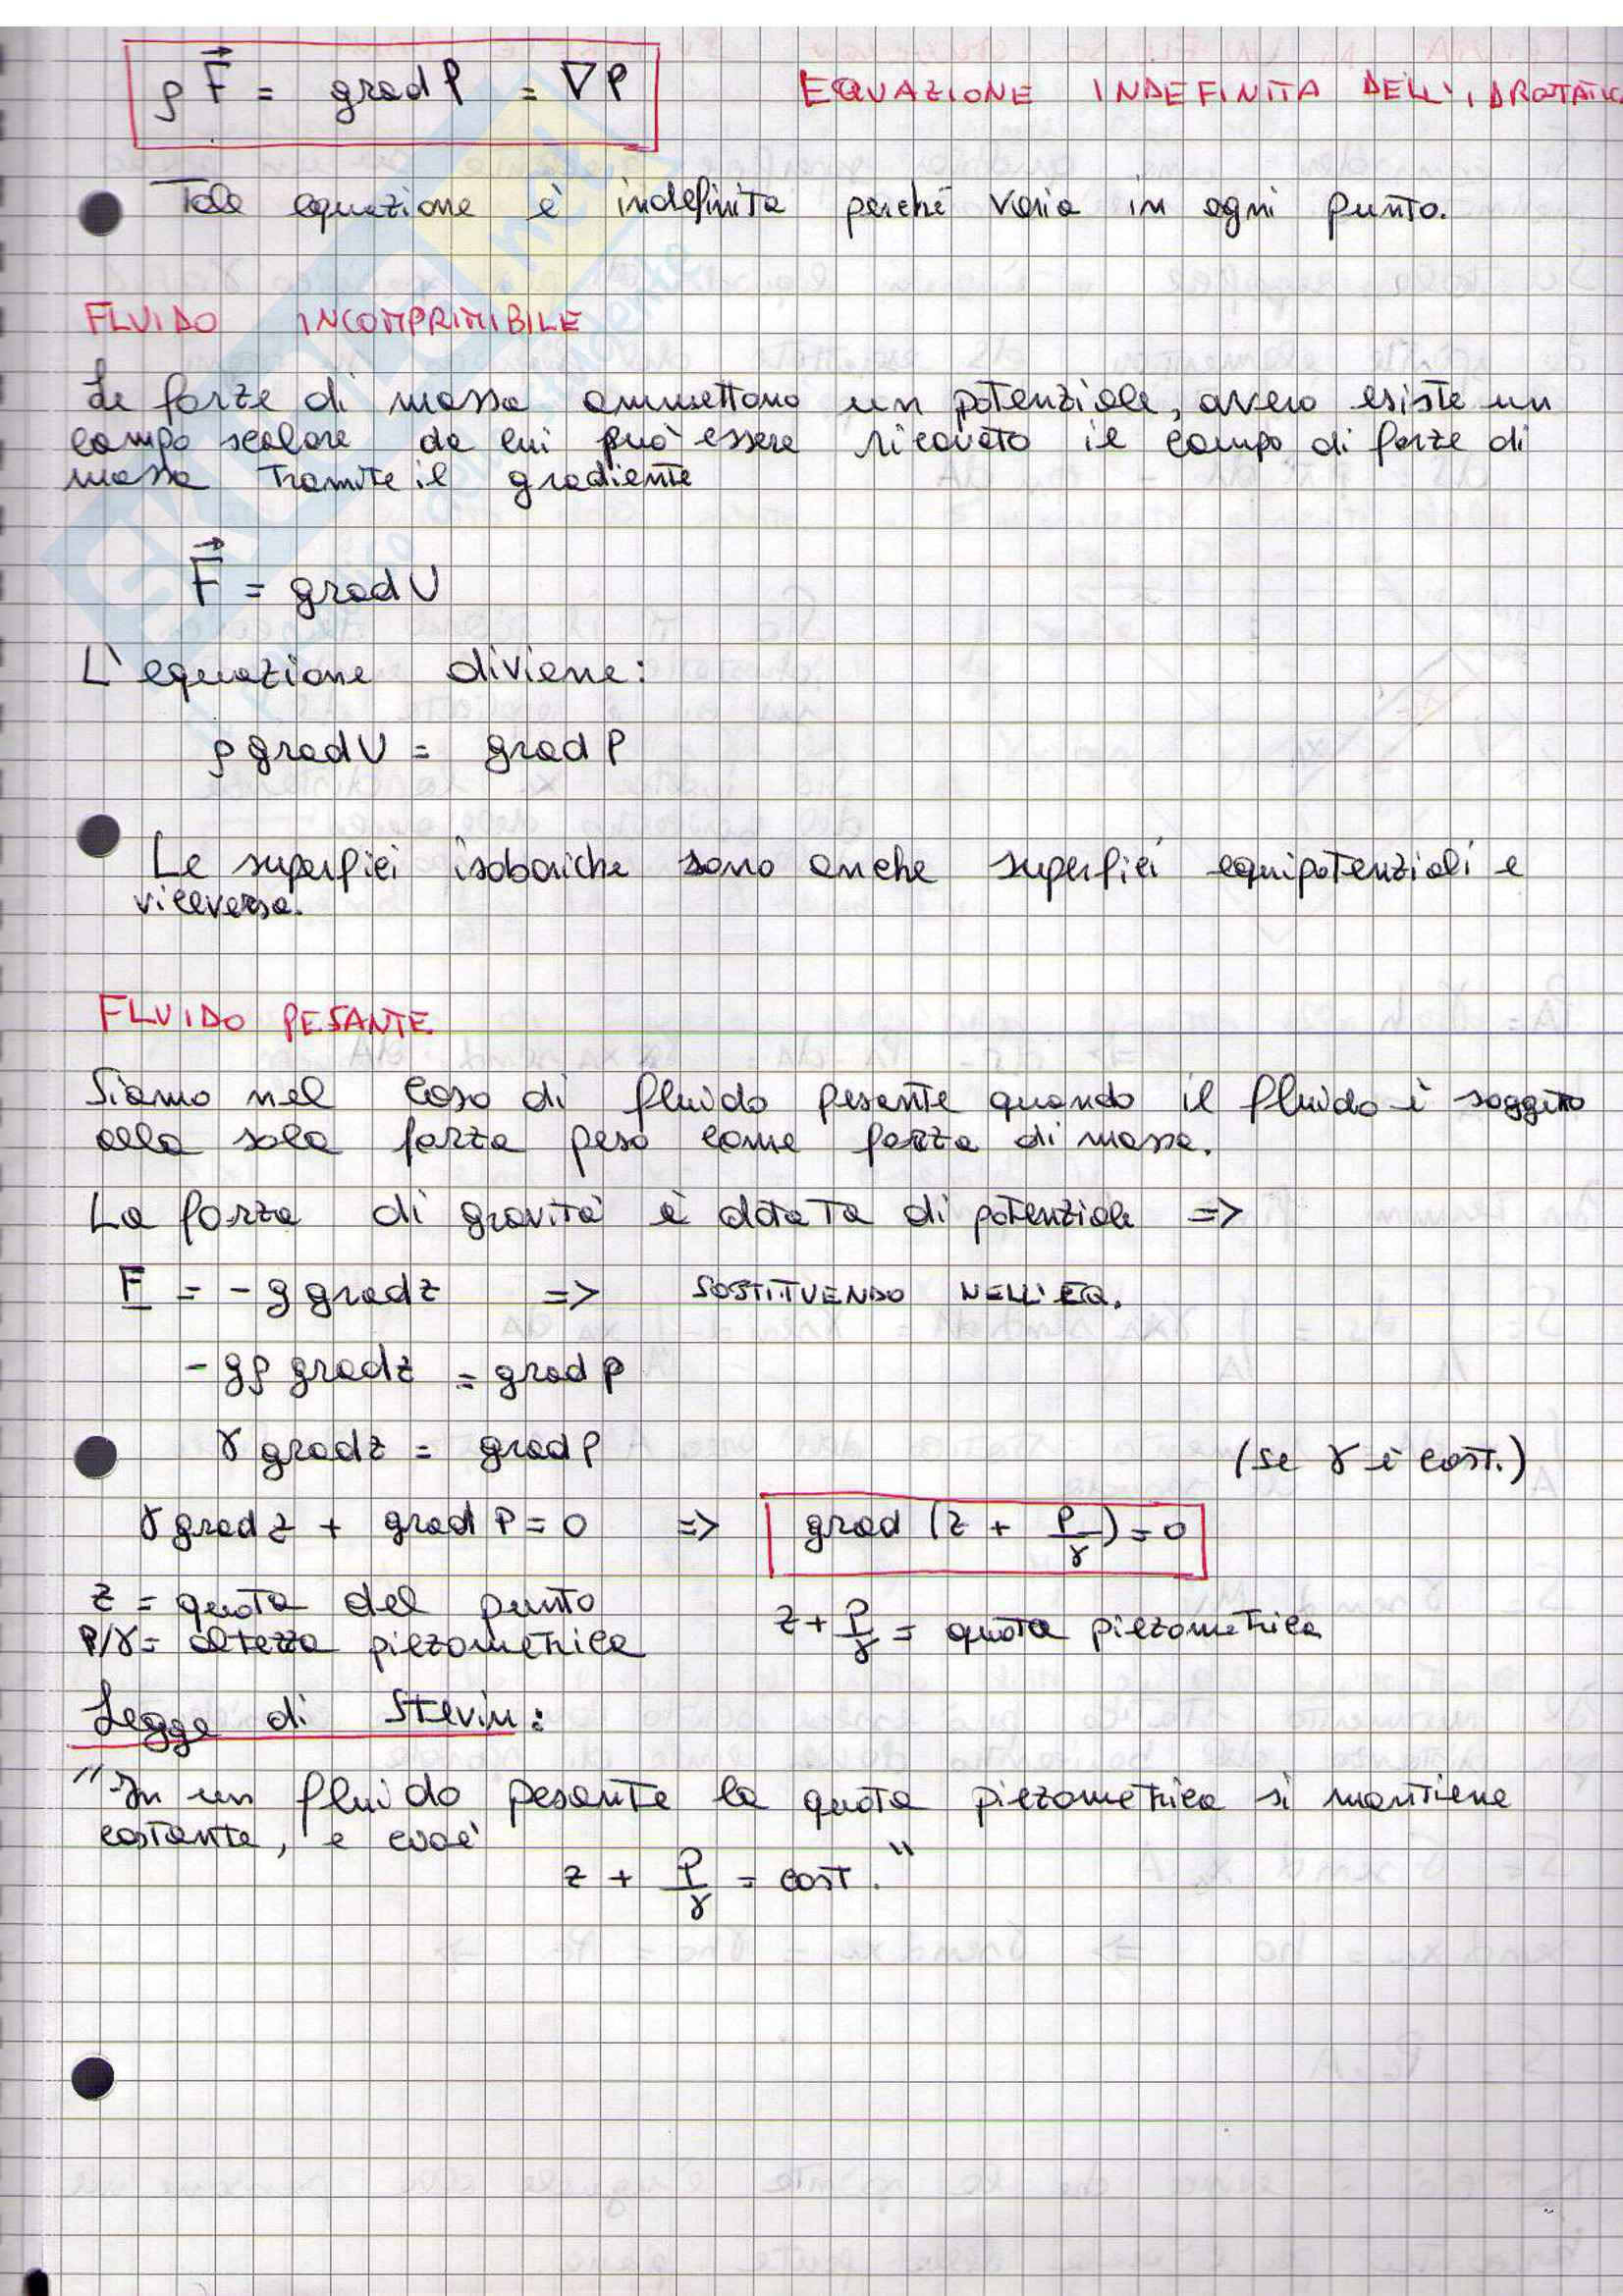 ρ F⃗ = grad P = ∇P EQUAZIONE INDEFINITA DELL'IDROSTATIC
Tale equazione è indefinita perché varia in ogni punto.
FLUIDO INCOMPRIMIBILE
Le forze di massa ammettono un potenziale, ovvero esiste un
campo scalare da cui può essere ricavato il campo di forze di
massa tramite il gradiente
F⃗ = grad U
L'equazione diviene:
ρ grad U = grad P
Le superfici isobariche sono anche superfici equipotenziali e
viceversa.
FLUIDO PESANTE
Siamo nel caso di fluido pesante quando il fluido è soggetto
alla sola forza peso come forza di massa.
La forza di gravità è dotata di potenziale =>
F = - g grad z => SOSTITUENDO NELL'EQ.
- gρ grad z = grad p
γ grad z = grad P
(se γ è cost.)
γ grad z + grad P = 0 => grad (z + P/γ) = 0
z = quota del punto
P/γ = altezza piezometrica
z + P/γ = quota piezometrica
Legge di Stevin:
"In un fluido pesante la quota piezometrica si mantiene
costante, e cioè
z + P/γ = cost."